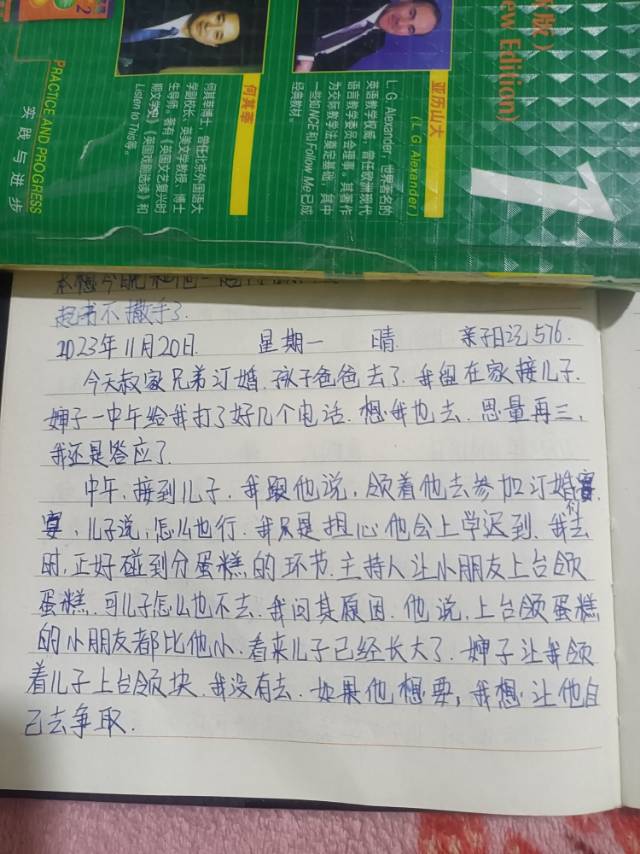 版）
New Edition)
1
亚历山大
(L. G. Alexander)
L. G. Alexander，世界著名的
英语教学权威，曾任欧洲现代
语言教学委员会理事。其著作
为交际教学法奠定基础，其中
尤如NCE和Follow Me已成
经典教材。
何其莘
何其莘博士，曾任北京外国语大
学副校长、英美文学教授、博士
生导师。著有《英国文艺复兴时
期文学史》《英国戏剧选读》和
Listen to This等。
2
PRACTICE AND PROGRESS
实践与进步
抱书不撒手了.
2023年11月20日. 星期一 晴. 亲子日记576.
今天叔家兄弟订婚.孩子爸爸去了.我留在家接儿子.
婶子一中午给我打了好几个电话.想我也去.思量再三，
我还是答应了.
中午,接到儿子.我跟他说,领着他去参加订婚
宴,儿子说,怎么也行.我只是担心他会上学迟到.我们去
时,正好碰到分蛋糕的环节.主持人让小朋友上台领
蛋糕.可儿子怎么也不去.我问其原因.他说,上台领蛋糕
的小朋友都比他小.看来儿子已经长大了.婶子让我领
着儿子上台领块.我没有去.如果他想要,我想让他自
己去争取.